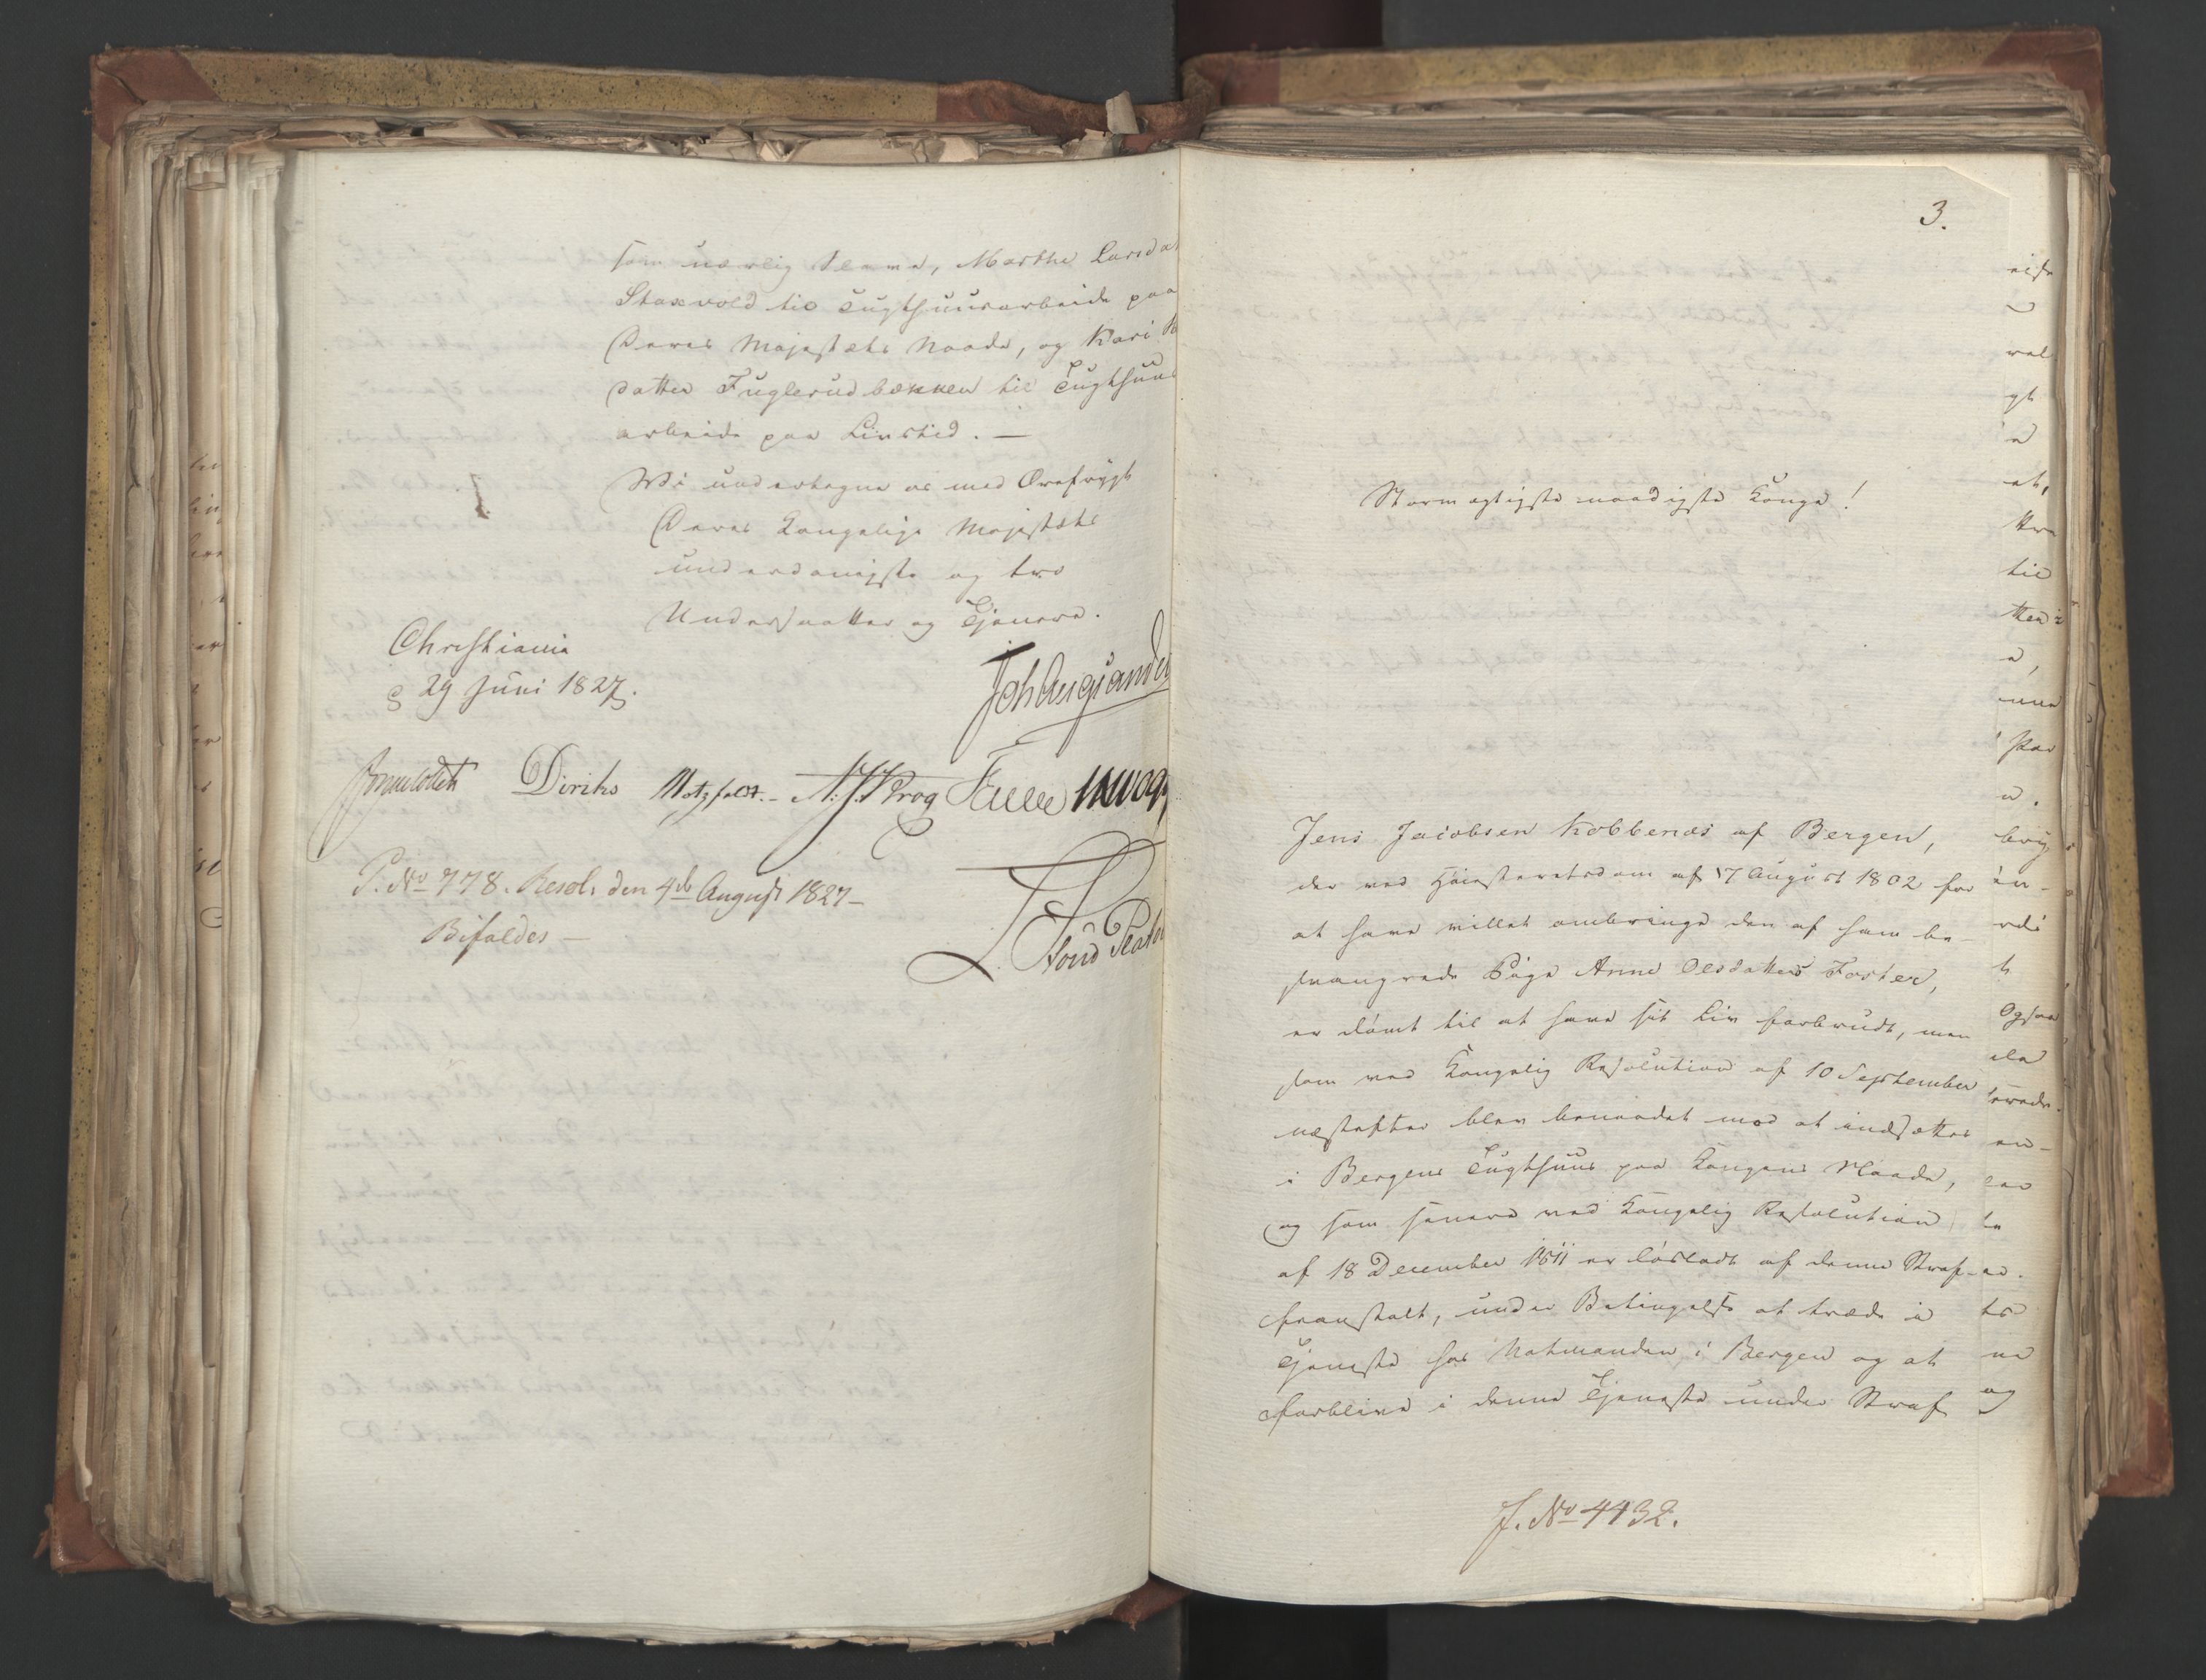 som uærlig Slave, Marthe Larsdat
Staxvold til Tugthuusarbeide paa
Deres Majestæts Naade, og Kari
datter Fuglerudbækken til Tugthuus
arbeide paa Livstid. —
Vi undertegne os med Ærefrygt
Deres Kongelige Majestæts
underdanigste og tro
Undersaatter og Tjenere.
Christiania
29 Juni 1827.
Diriks Motzfeldt. N. J. Krog
P. No 778. Resol. den 4de August 1827 —
Bifaldes —
3.
Stormægtigste naadigste Konge!
Jens Jacobsen Kobbenæs af Bergen,
der ved Høiesteretsdom af 17 August 1802 for
at have villet ombringe den af ham be-
svangrede Pige Anne Olsdatters Foster,
er dömt til at have sit Liv forbrudt, men
som ved Kongelig Resolution af 10 September
næstefter blev benaadet med at indsættes
i Bergens Tugthuus paa Kongens Naade,
og som senere ved Kongelig Resolution
af 18 December 1811 er lösladt af denne Straf-
feanstalt, under Betingelse at træde i
Tjeneste hos Natmanden i Bergen og at
forblive i denne Tjeneste under Straf
J. No 4432.
til
Ogsaa
og